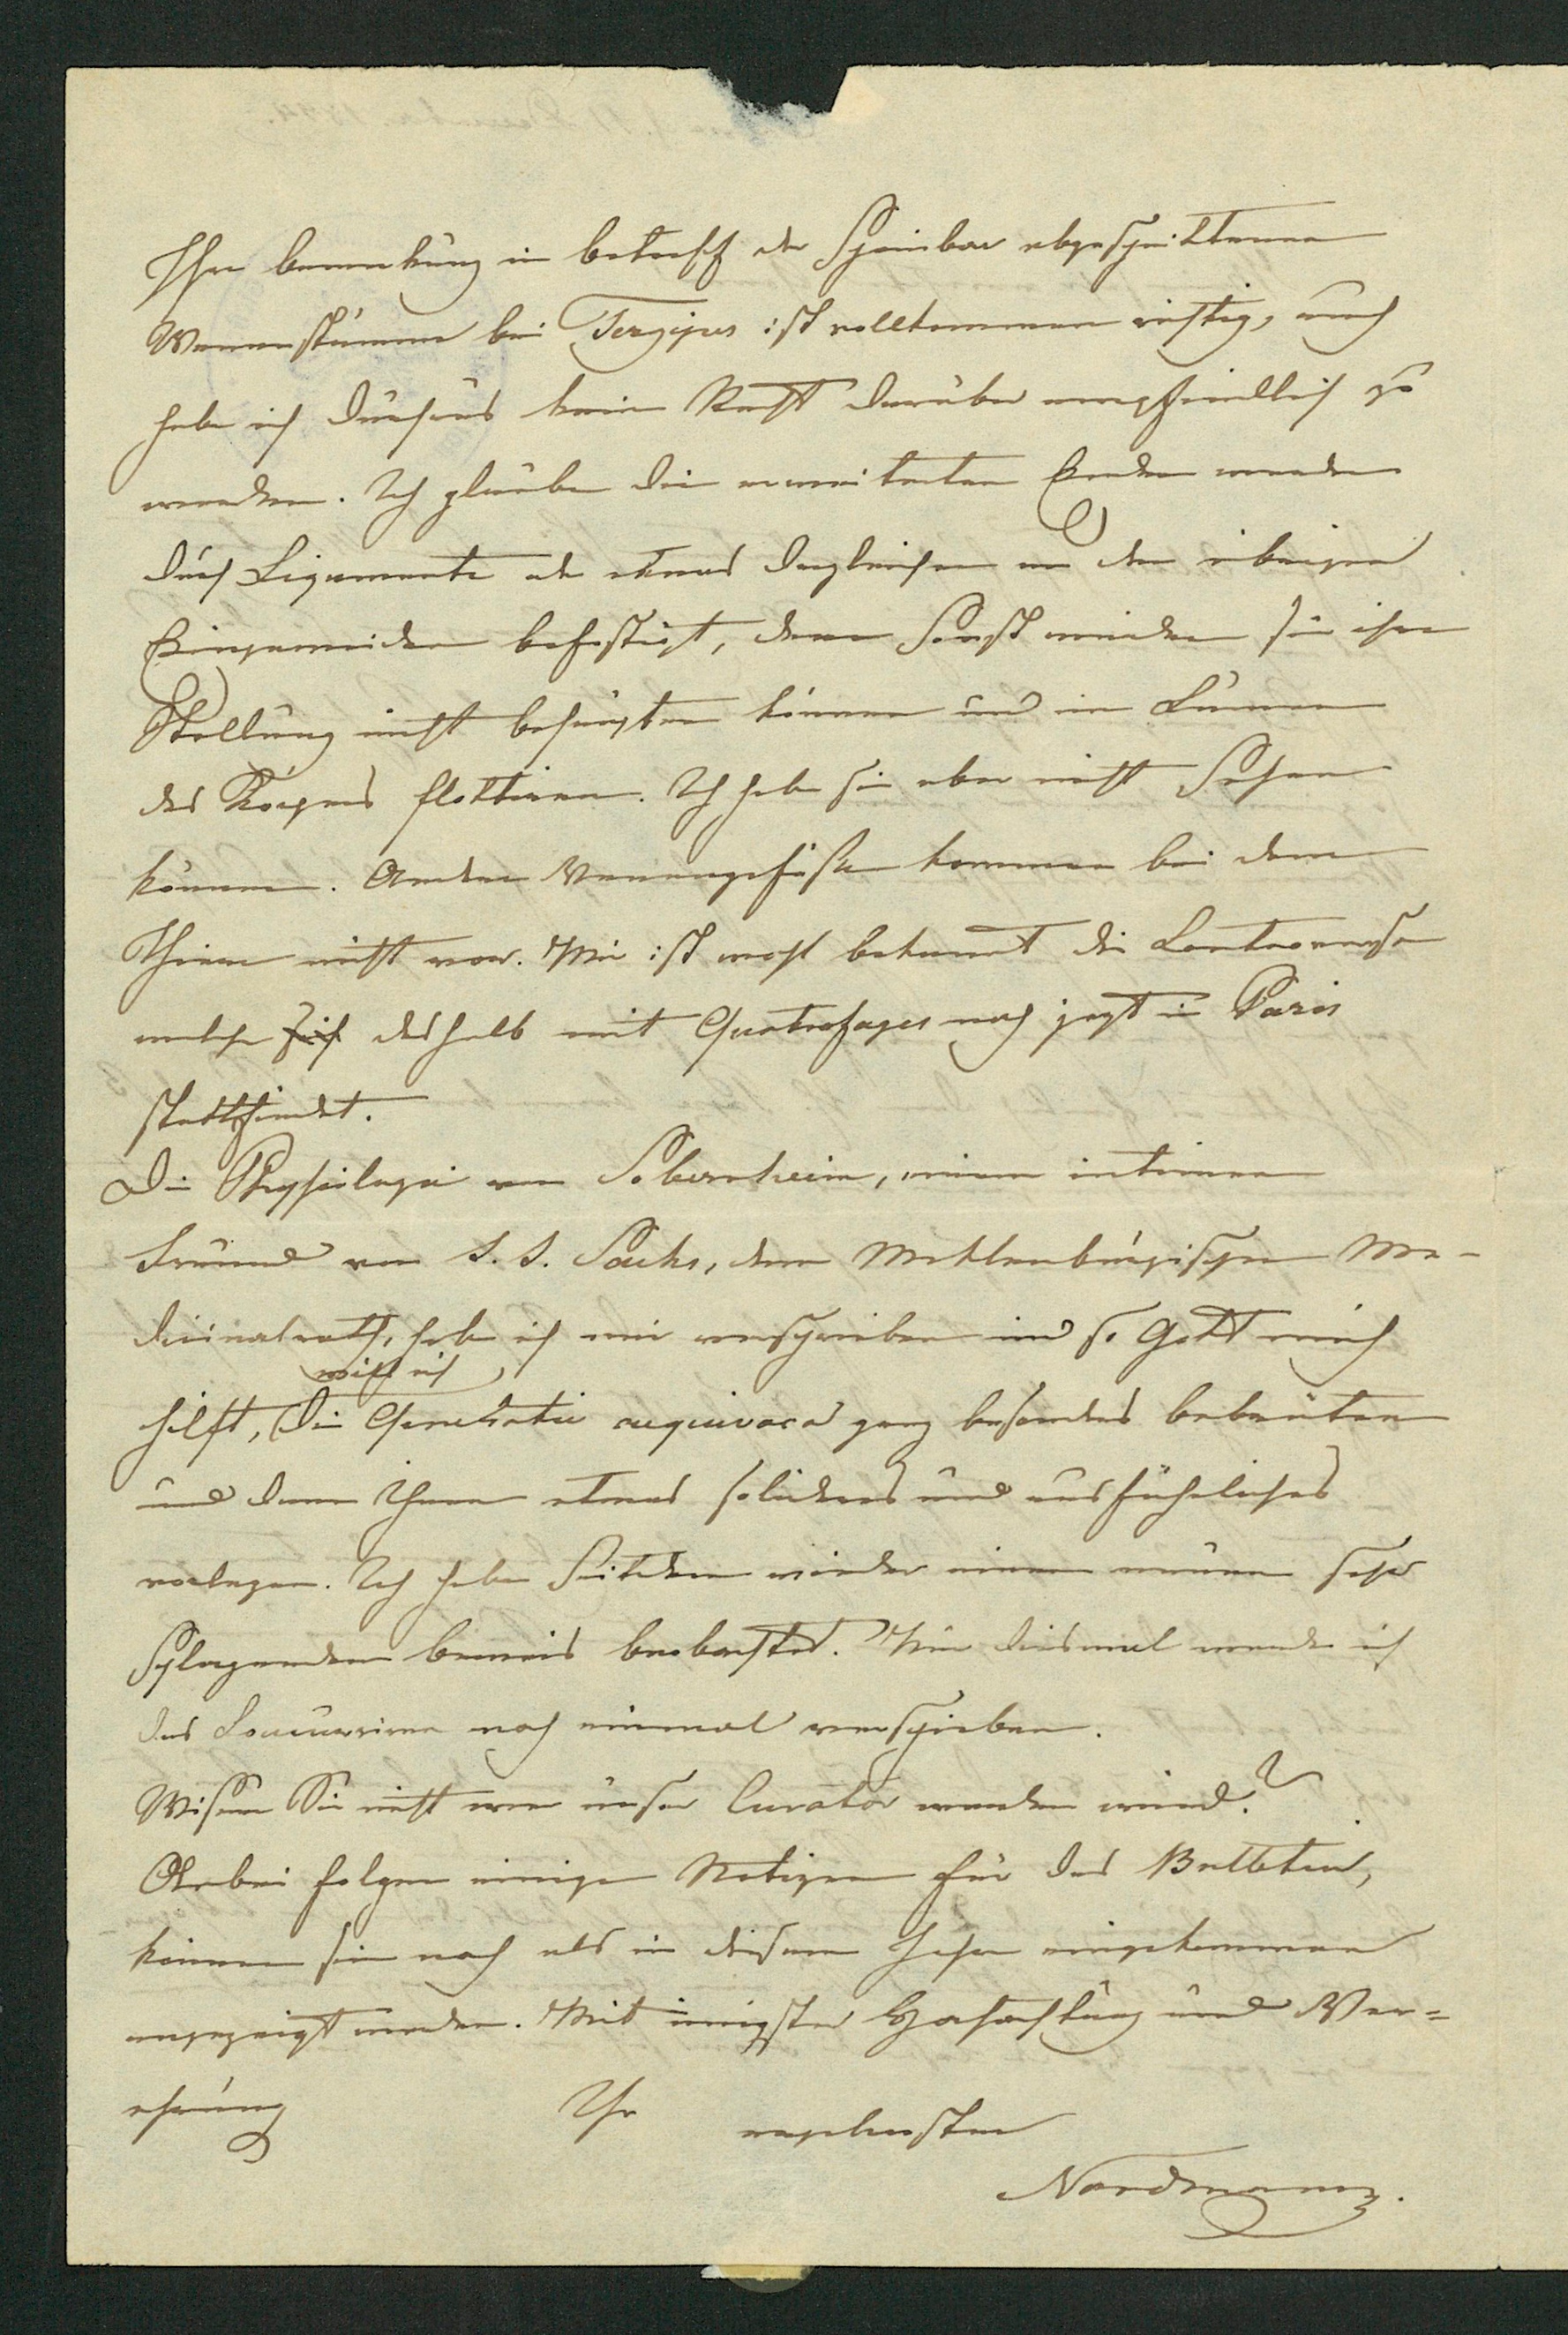 Ihre bemerkung in betreff der Scheinbar abgeschnittenen
Venenstämme bei Tergipes ist vollkommen richtig, auch
habe ich durchaus kein Recht darüber empfindlich zu
werden. Ich glaube die erweiterten Enden werden
durch Ligamente oder etwas dergleichen an den übrigen
Eingeweiden befestigt, denn Sonst würden sie ihre
Stellung nicht behaupten können und im Lumen
des Körpers flottiren. Ich habe sie aber nicht Sehen
können. Andere Venengefäße kommen bei dem
Thiere nicht vor. Mir ist wohl bekannt die Controverse
welche sich deshalb mit Quatrefages noch jetzt in Paris
stattfindet.
Die Physiologie von Sobernheim, einem intimen
Freund von S. S. Sachs, dem Meklenburgischen Me-
dicinalrath, habe ich mir verschrieben und so Gott mich
will ich
hilft, die Generatio aequivoca ganz besonders bebrüten
und dann Ihnen etwas solideres und ausführliches
vorlegen. Ich habe Seitdem wieder einen neuen sehr
schlagenden beweis beobachtet. Für diesmal werde ich
das Concurriren noch einmal verschieben.
Wissen Sie nicht wer unser Curator werden wird?
Anbei folgen einige Notizen für das Bulletin,
können sie noch als in diesem Jahre eingekommen
angezeigt werden. Mit innigster Hochachtung und Ver=
ehrung Ihr ergebenster
Nordmann.